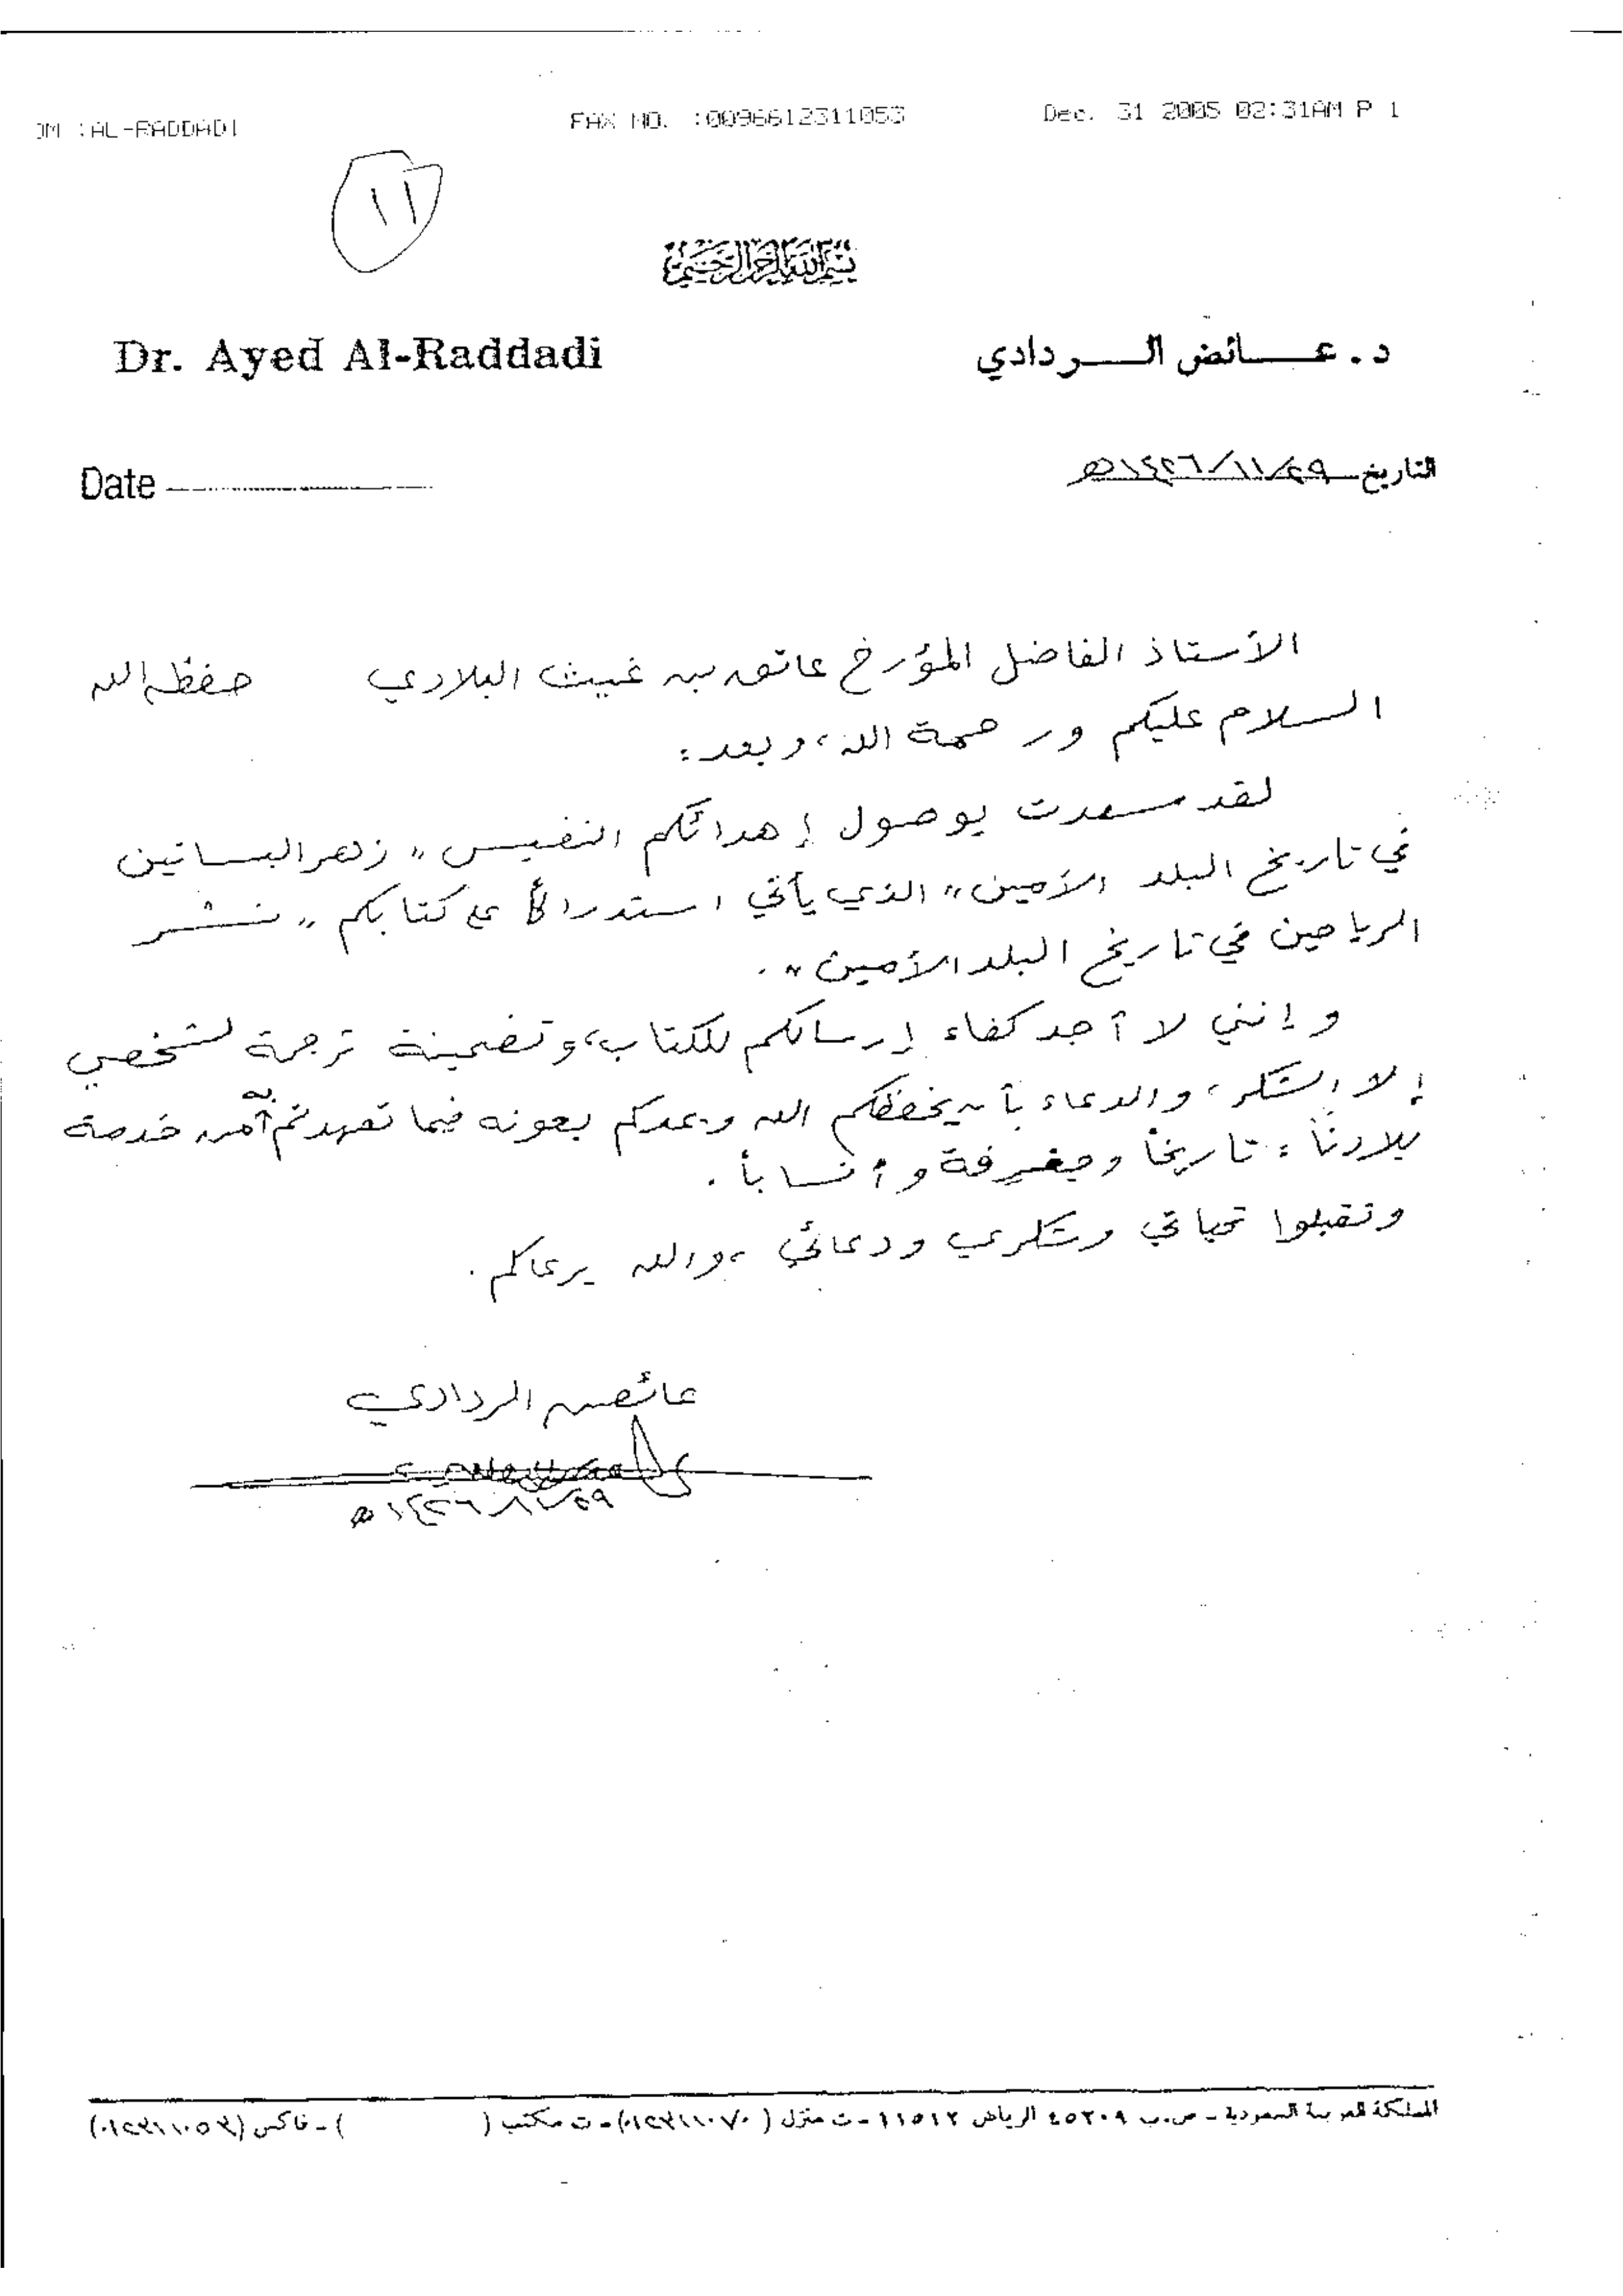 OM :AL-RADDADI
FAX NO. :0096612311053
Dec. 31 2005 02:31AM P 1
١١
بسم الله الرحمن الرحيم
Dr. Ayed Al-Raddadi
د. عــائض الــردادي
Date
التاريخ ١٤٢٦/١١/٢٩هـ
الأستاذ الفاضل المؤرخ عاتق بن غيث البلادي حفظه الله
السلام عليكم ورحمة الله، وبعد:
لقد سعدت بوصول إهدائكم النفيس "زهر البساتين
في تاريخ البلد الأمين" الذي يأتي استدراكاً على كتابكم "نشر
الرياحين في تاريخ البلد الأمين".
وإنني لا أجد كفاء إرسالكم للكتاب، وتضمينة ترجمة لشخصي
إلا الشكر، والدعاء بأن يحفظكم الله ويمدكم بعونه فيما تعهدتم به من خدمة
بلادنا: تاريخاً وجغرفة وأنساباً.
وتقبلوا تحياتي وشكري ودعائي، والله يرعاكم.
عائض الردادي
١٤٢٦/١١/٢٩هـ
المملكة العربية السعودية - ص.ب ٤٥٢٠٩ الرياض ١١٥١٢ - ت منزل (٠١٢٣١١٠٧٠) - ت مكتب ( ) - فاكس (٠١٢٣١١٠٥٣)